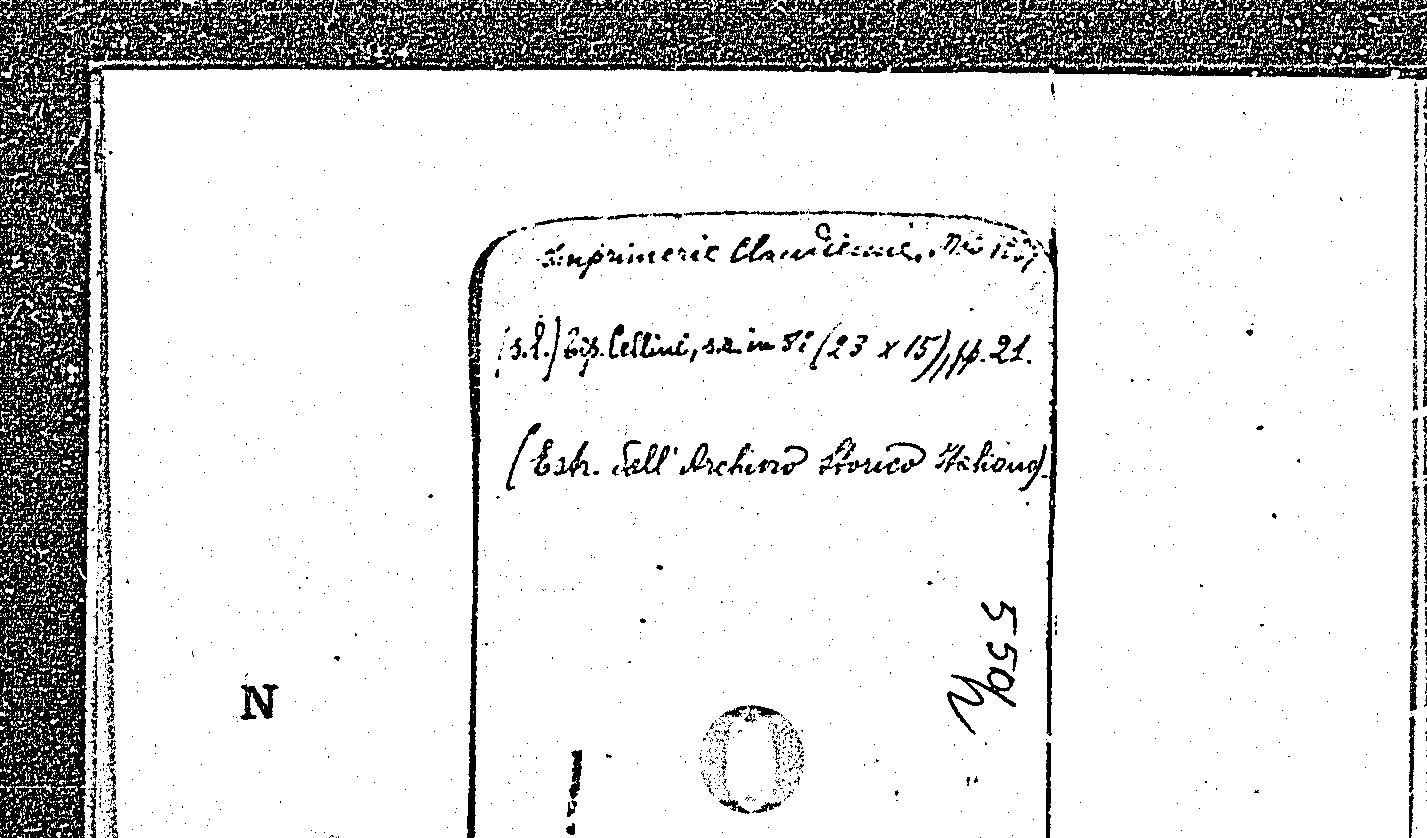 Imprimerie
(s.l.) Tip. Cellini, s.a. in 8° (23 x 15), pp. 21.
(Estr. dall' Archivio Storico Italiano).
550
N